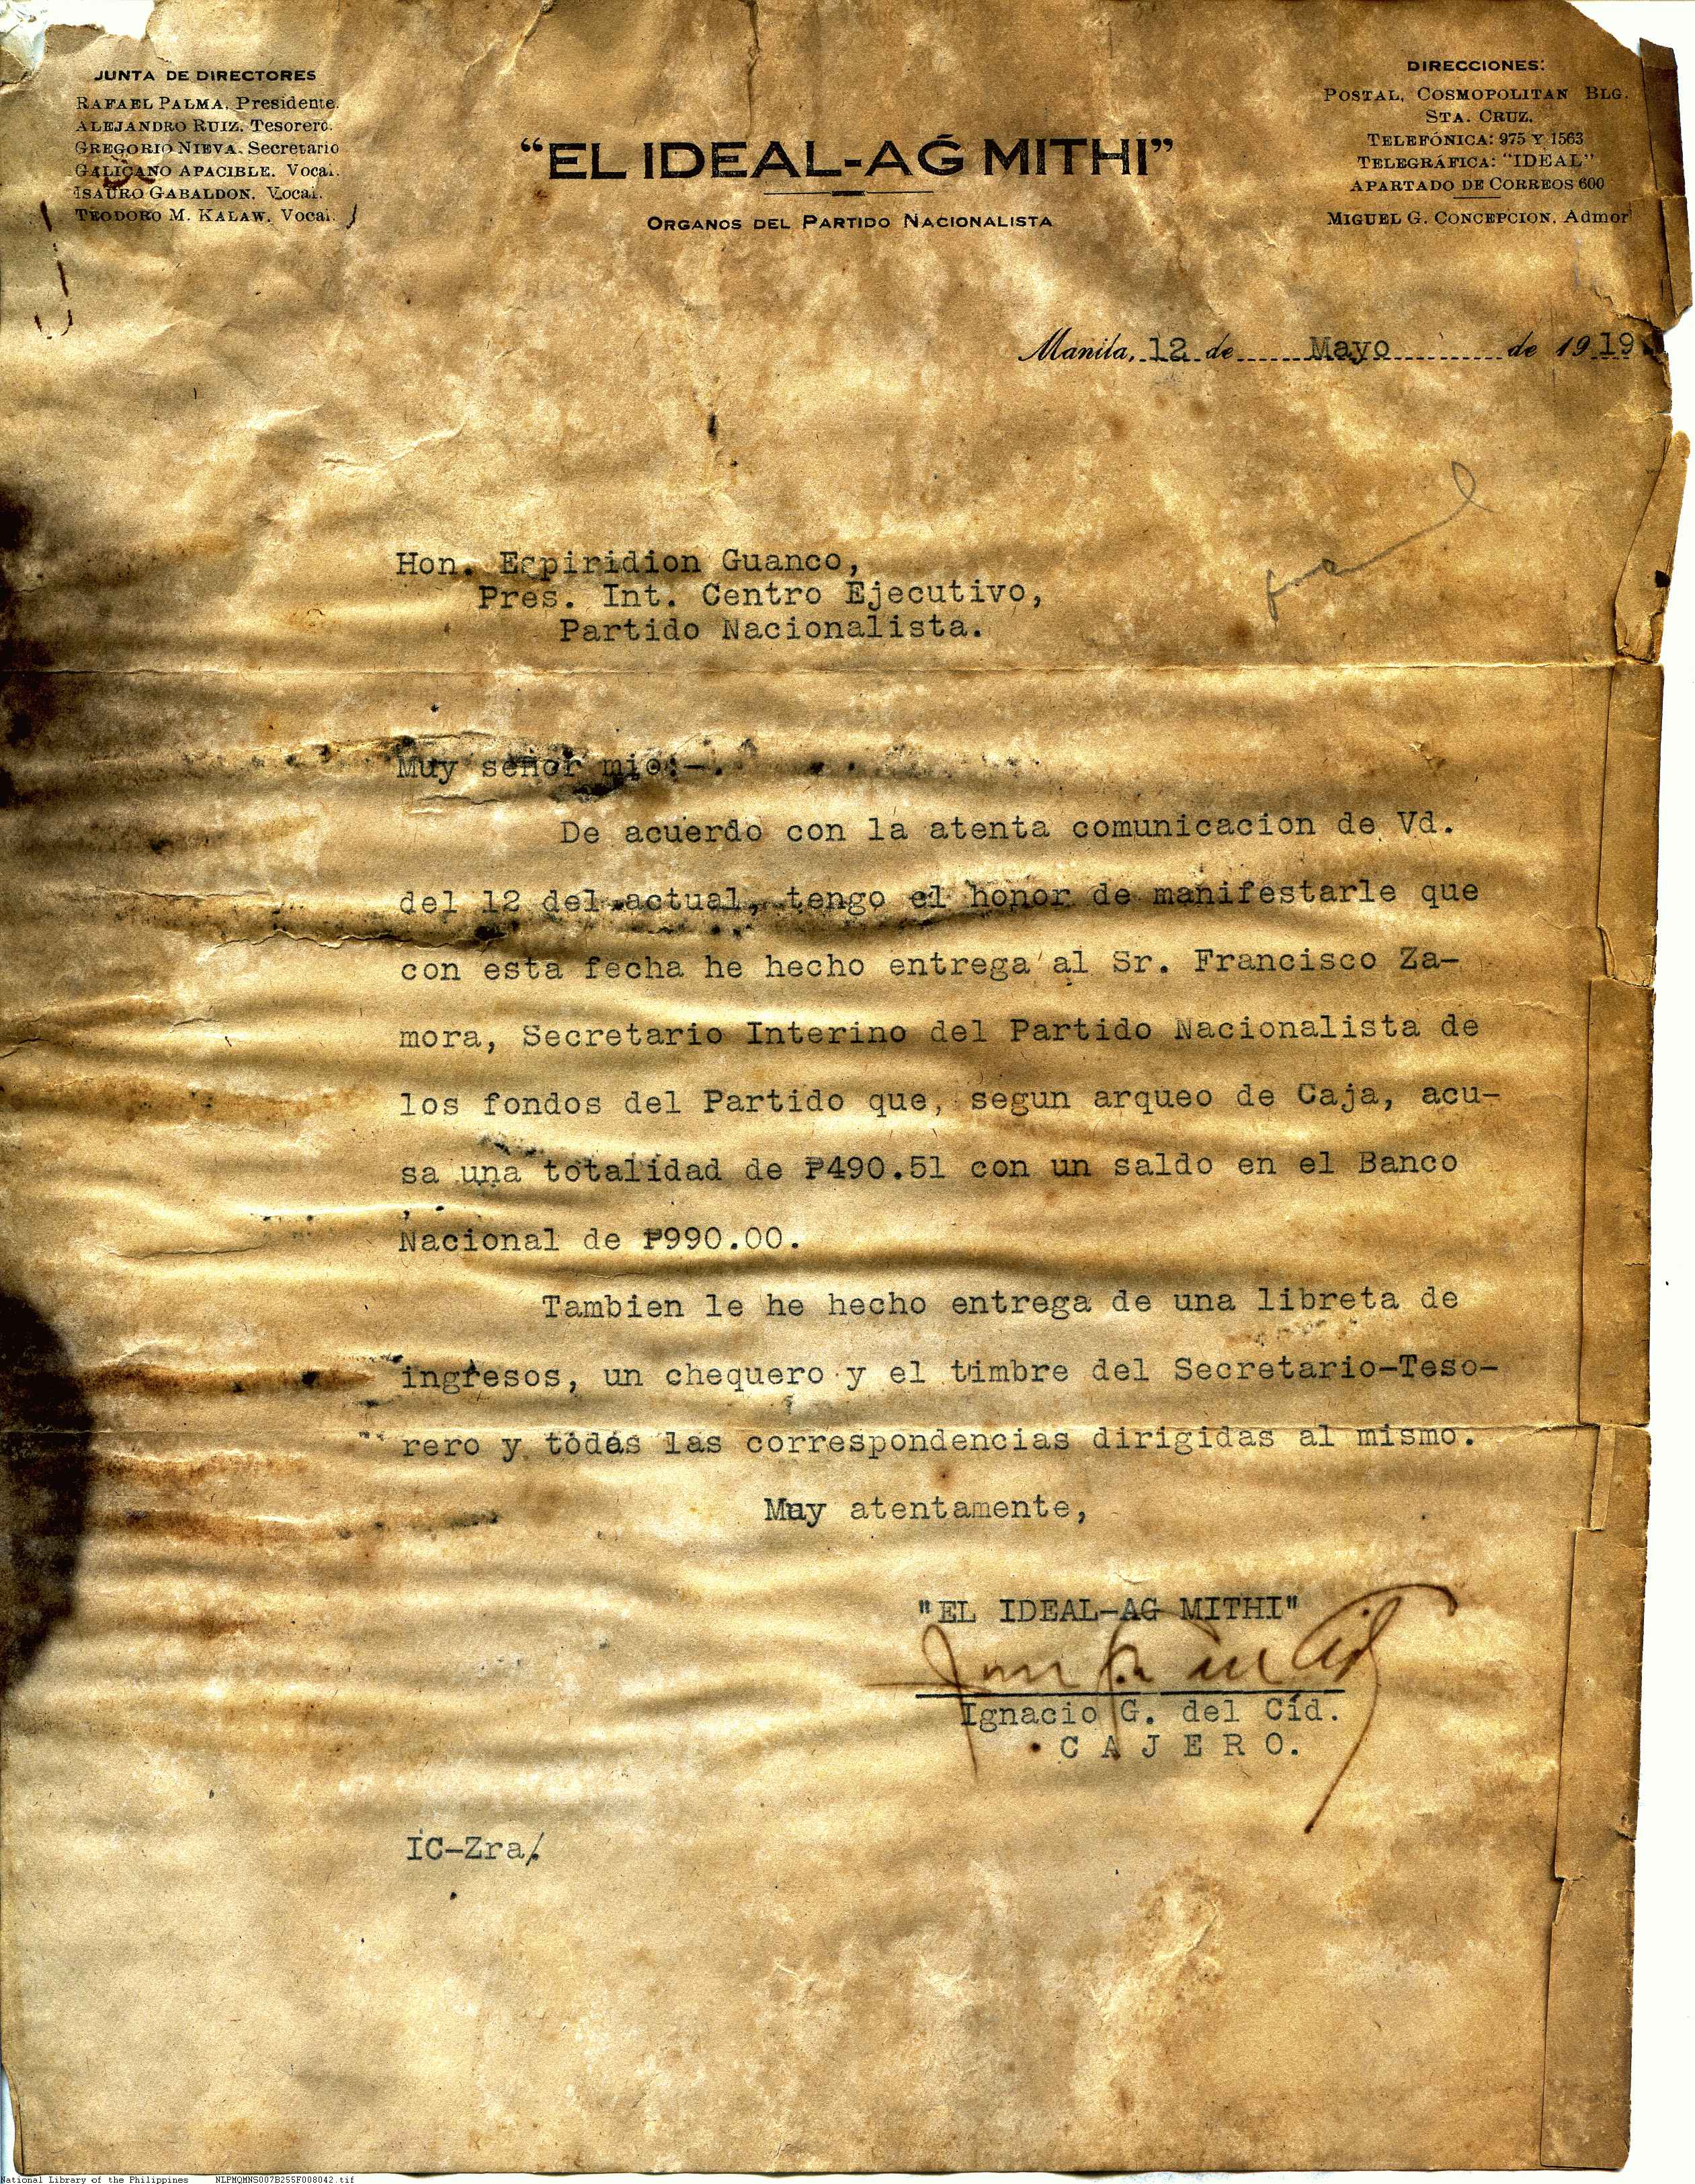 JUNTA DE DIRECTORES
RAFAEL PALMA, Presidente.
ALEJANDRO RUIZ, Tesorero.
GREGORIO NIEVA, Secretario
GALICANO APACIBLE, Vocal.
ISAURO GABALDON, Vocal.
TEODORO M. KALAW, Vocal.
“EL IDEAL-AG̃ MITHI”
ORGANOS DEL PARTIDO NACIONALISTA
DIRECCIONES:
POSTAL, COSMOPOLITAN BLG.
STA. CRUZ.
TELEFÓNICA: 975 Y 1563
TELEGRÁFICA: “IDEAL”
APARTADO DE CORREOS 600
MIGUEL G. CONCEPCION, Admor
Manila, 12 de Mayo de 1919.
Hon. Espiridion Guanco,
Pres. Int. Centro Ejecutivo,
Partido Nacionalista.
Muy señor mio:-
De acuerdo con la atenta comunicacion de Vd.
del 12 del actual, tengo el honor de manifestarle que
con esta fecha he hecho entrega al Sr. Francisco Za-
mora, Secretario Interino del Partido Nacionalista de
los fondos del Partido que, segun arqueo de Caja, acu-
sa una totalidad de ₱490.51 con un saldo en el Banco
Nacional de ₱990.00.
Tambien le he hecho entrega de una libreta de
ingresos, un chequero y el timbre del Secretario-Teso-
rero y todas las correspondencias dirigidas al mismo.
Muy atentamente,
"EL IDEAL-AG MITHI"
Ignacio G. del Cid.
C A J E R O.
IC-Zra/.
National Library of the Philippines NLPMQMNS007B255F008042.tif